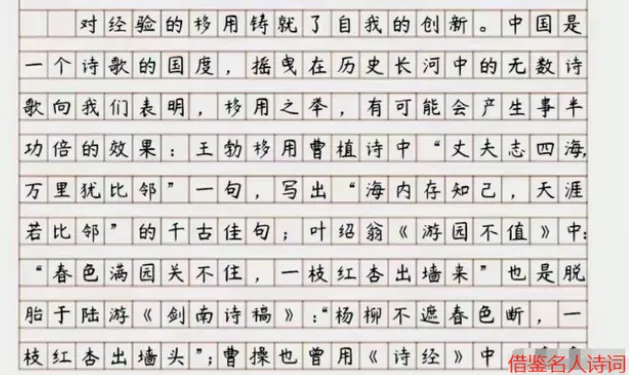 对经验的移用铸就了自我的创新。中国是
一个诗歌的国度，摇曳在历史长河中的无数诗
歌向我们表明，移用之举，有可能会产生事半
功倍的效果：王勃移用曹植诗中“丈夫志四海，
万里犹比邻”一句，写出“海内存知己，天涯
若比邻”的千古佳句；叶绍翁《游园不值》中：
“春色满园关不住，一枝红杏出墙来”也是脱
胎于陆游《剑南诗稿》：“杨柳不遮春色断，一
枝红杏出墙头”；曹操也曾用《诗经》中
借鉴名人诗词